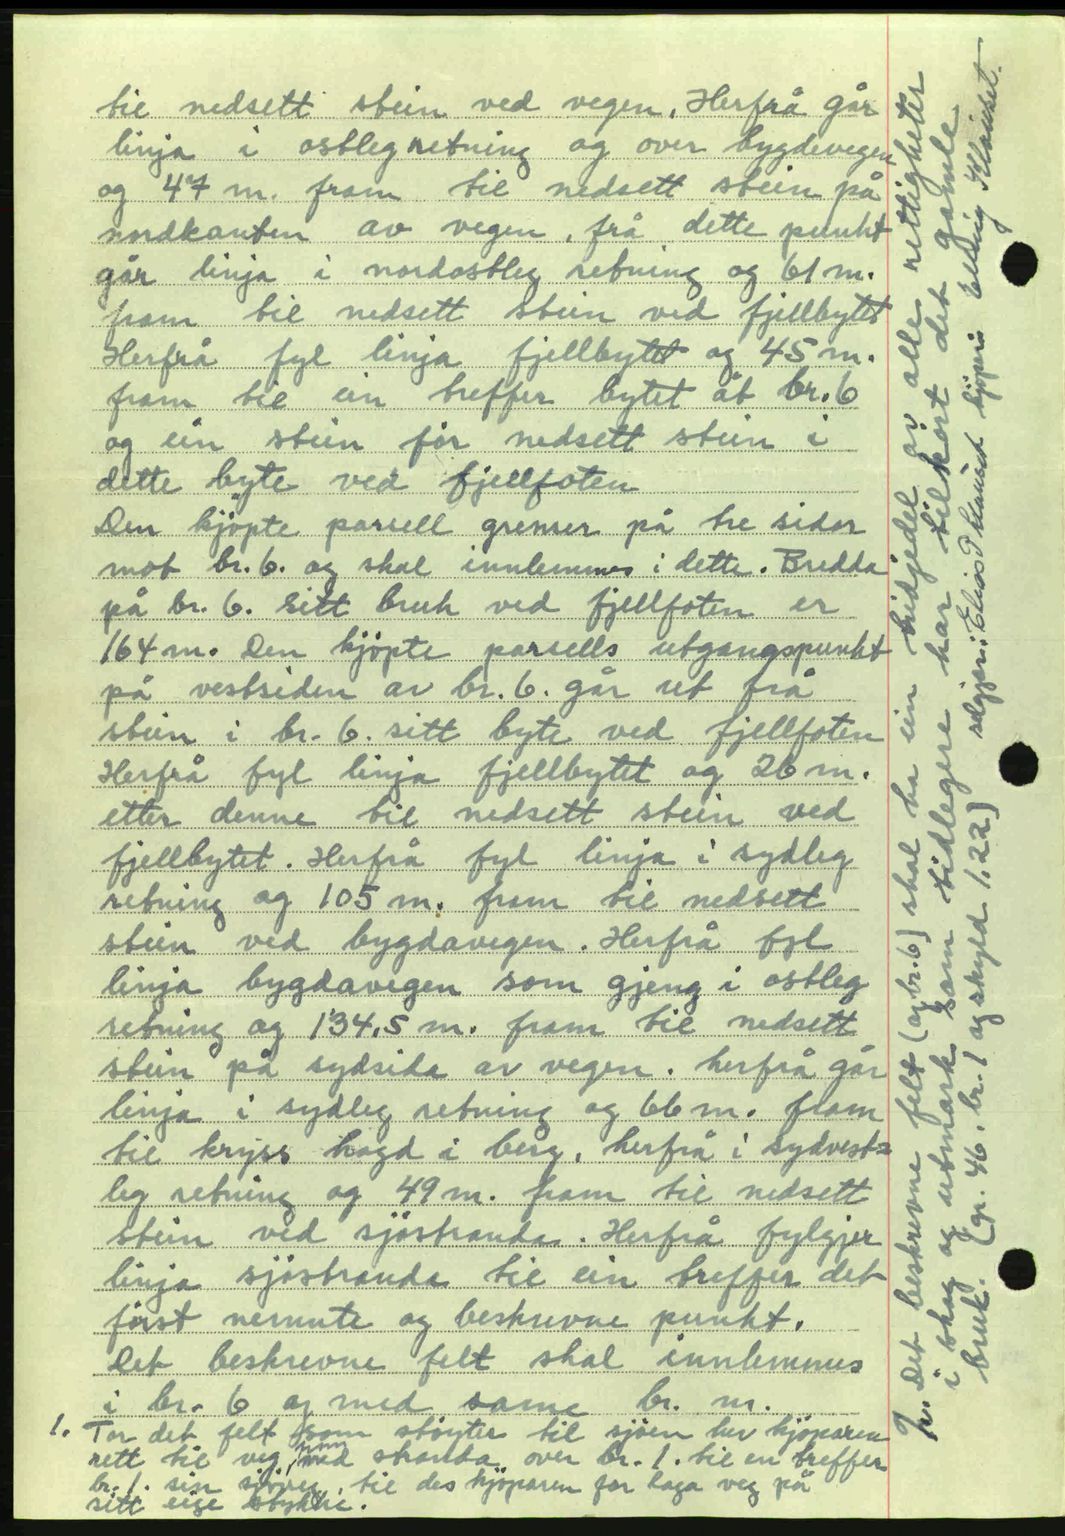 til nedsett stein ved vegen, Herfrå går
linja i ostleg retning og over bygdevegen
og 47 m. fram til nedsett stein på
nordkanten av vegen, frå dette punkt
går linja i nordostleg retning og 61 m.
fram til nedsett stein ved fjellbytet
Herfrå fyl linja fjellbytet og 45 m.
fram til ein treffer bytet åt br. 6
og ein stein før nedsett stein i
dette byte ved fjellfoten
Den kjöpte parsell grenser på tre sider
mot br. 6. og skal innlemmes i dette. Bredda
på br. 6. sitt bruk ved fjellfoten er
164 m. Den kjöpte parsells utgangspunkt
på vestsiden av br. 6. går ut frå
stein i br. 6. sitt byte ved fjellfoten
Herfrå fyl linja fjellbytet og 26 m.
etter denne til nedsett stein ved
fjellbytet. Herfrå fyl linja i sydleg
retning og 105 m. fram til nedsett
stein ved bygdavegen. Herfrå fyl
linja bygdavegen som gjeng i ostleg
retning og 134,5 m. fram til nedsett
stein på sydsida av vegen. herfrå går
linja i sydleg retning og 66 m. fram
til kryss hogd i berg, herfrå i sydvest=
leg retning og 49 m. fram til nedsett
stein ved sjöstranda. Herfrå fylgjer
linja sjöstranda til ein treffer det
först nemnte og beskrevne punkt.
Det beskrevne felt skal innlemmes
i br. 6 og med same br. nr.
1. For det felt som stöyter til sjöen hev kjöparen
rett til veg, ned stranda over br. 1. til en treffer
br. 1. sin sjöveg, til des kjöparen for laga veg på
sitt eige stykke.
2. Det beskrevne felt (og br. 6) skal ha ein tridjedel av alle rettigheter
i skog og utmark som tidlegere har tilhört det gamle
bruk. (gr. 46. br. 1 og skyld 1.22) seljar: Elias P Klauset kjöpar: Elling Klauset.